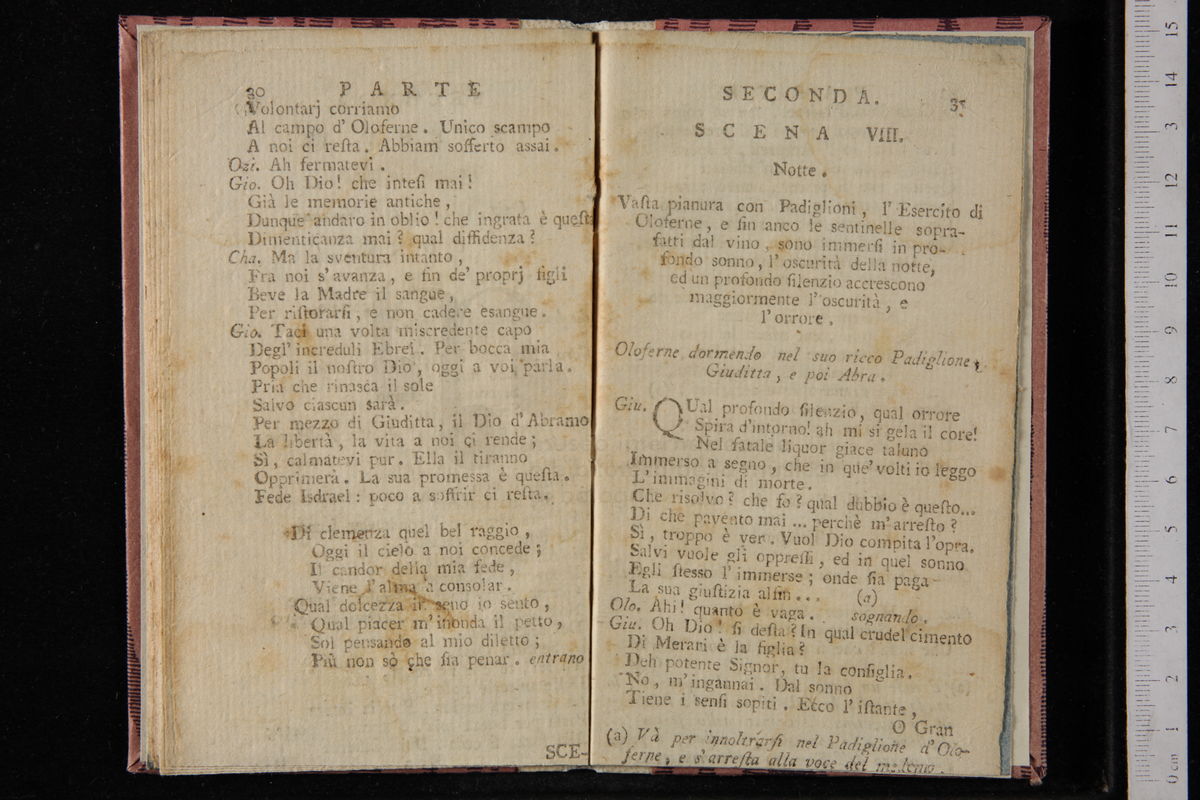 30 PARTE
Volontarj corriamo
Al campo d' Oloferne. Unico scampo
A noi ci resta. Abbiam sofferto assai.
Ozi. Ah fermatevi.
Gio. Oh Dio! che intesi mai!
Già le memorie antiche,
Dunque andaro in oblio! che ingrata è questa
Dimenticanza mai? qual diffidenza?
Cha. Ma la sventura intanto,
Fra noi s'avanza, e fin de' proprj figli
Beve la Madre il sangue,
Per ristorarsi, e non cadere esangue.
Gio. Taci una volta miscredente capo
Degl' increduli Ebrei. Per bocca mia
Popoli il nostro Dio, oggi a voi parla.
Pria che rinasca il sole
Salvo ciascun sarà.
Per mezzo di Giuditta, il Dio d'Abramo
La libertà, la vita a noi ci rende;
Sì, calmatevi pur. Ella il tiranno
Opprimerà. La sua promessa è questa.
Fede Isdrael: poco a soffrir ci resta.
Di clemenza quel bel raggio,
Oggi il cielo a noi concede;
Il candor della mia fede,
Viene l'alma a consolar.
Qual dolcezza in seno io sento,
Qual piacer m'inonda il petto,
Sol pensando al mio diletto;
Più non sò che sia penar. entrano
SCE-
SECONDA.
SCENA VIII.
Notte.
Vasta pianura con Padiglioni, l'Esercito di
Oloferne, e fin anco le sentinelle sopra-
fatti dal vino, sono immersi in pro-
fondo sonno, l'oscurità della notte,
ed un profondo silenzio accrescono
maggiormente l'oscurità, e
l'orrore.
Oloferne dormendo nel suo ricco Padiglione;
Giuditta, e poi Abra.
Giu. QUal profondo silenzio, qual orrore
Spira d'intorno! ah mi si gela il core!
Nel fatale liquor giace taluno
Immerso a segno, che in que' volti io leggo
L'immagini di morte.
Che risolvo? che fo? qual dubbio è questo...
Di che pavento mai... perchè m'arresto?
Sì, troppo è ver. Vuol Dio compita l'opra.
Salvi vuole gli oppressi, ed in quel sonno
Egli stesso l'immerse; onde sia paga
La sua giustizia alfin... (a)
Olo. Ahi! quanto è vaga. sognando.
Giu. Oh Dio! si desta? In qual crudel cimento
Di Merari è la figlia?
Deh potente Signor, tu la consiglia.
No, m'ingannai. Dal sonno
Tiene i sensi sopiti. Ecco l'istante,
O Gran
(a) Và per innoltrarsi nel Padiglione d'Olo-
ferne, e s'arresta alla voce del medemo.